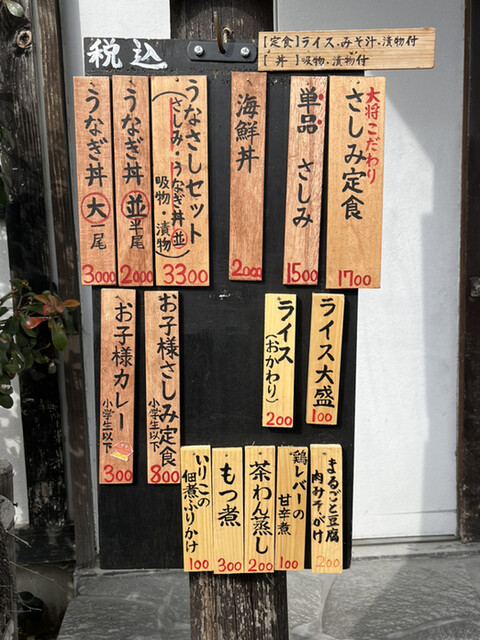 税込
【定食】ライス・みそ汁・漬物付
【丼】吸物・漬物付
大将こだわり
さしみ定食
1700
単品 さしみ
1500
海鮮丼
2000
うなさしセット
(さしみ・うなぎ丼並)
吸物・漬物
3300
うなぎ丼 並 半尾
2000
うなぎ丼 大 一尾
3000
ライス大盛
100
ライス
(おかわり)
200
お子様さしみ定食
小学生以下
800
お子様カレー
小学生以下
300
まるごと豆腐
肉みそがけ
200
鶏レバーの
甘辛煮
100
茶わん蒸し
200
もつ煮
300
いりこの
佃煮ふりかけ
100